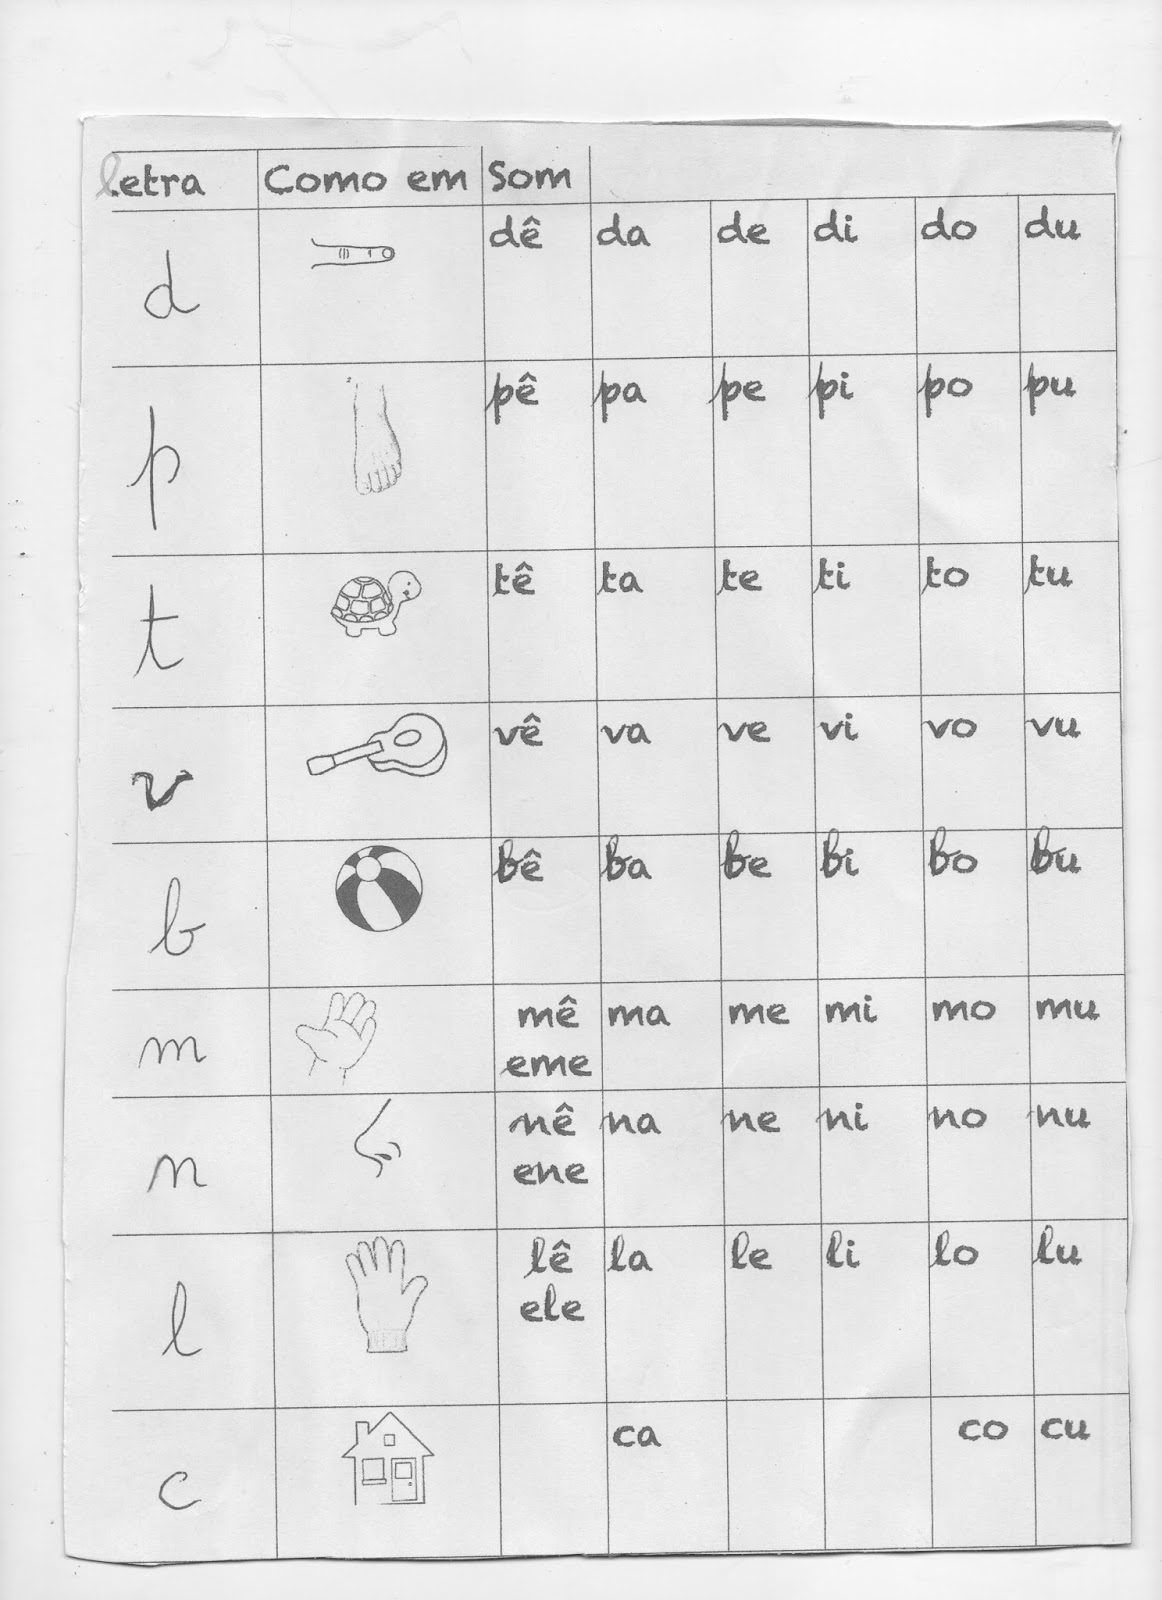 letra Como em Som
d dê da de di do du
p pê pa pe pi po pu
t tê ta te ti to tu
v vê va ve vi vo vu
b bê ba be bi bo bu
m mê ma me mi mo mu
eme
n nê na ne ni no nu
ene
l lê la le li lo lu
ele
c ca co cu